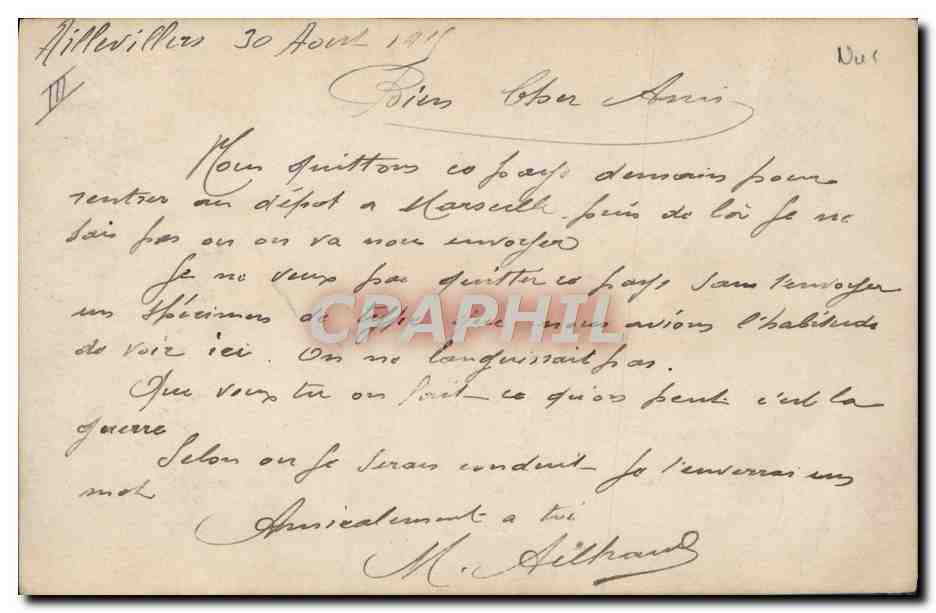 Aillevillers 30 Aout 1915
Nue
III
Bien Cher Ami
Nous quittons ce pays demain pour
rentrer au dépot a Marseille. puis de là Je ne
sais pas ou on va nous envoyer
Je ne veux pas quitter ce pays sans t'envoyer
un spécimens de que nous avions l'habitude
de voir ici. On ne languissait pas.
Que veux tu on fait ce qu'on peut c'est la
guerre
Selon ou Je serais conduit Je t'enverrai un
mot
Amicalement a toi
M. Ailhaud
CPAPHIL